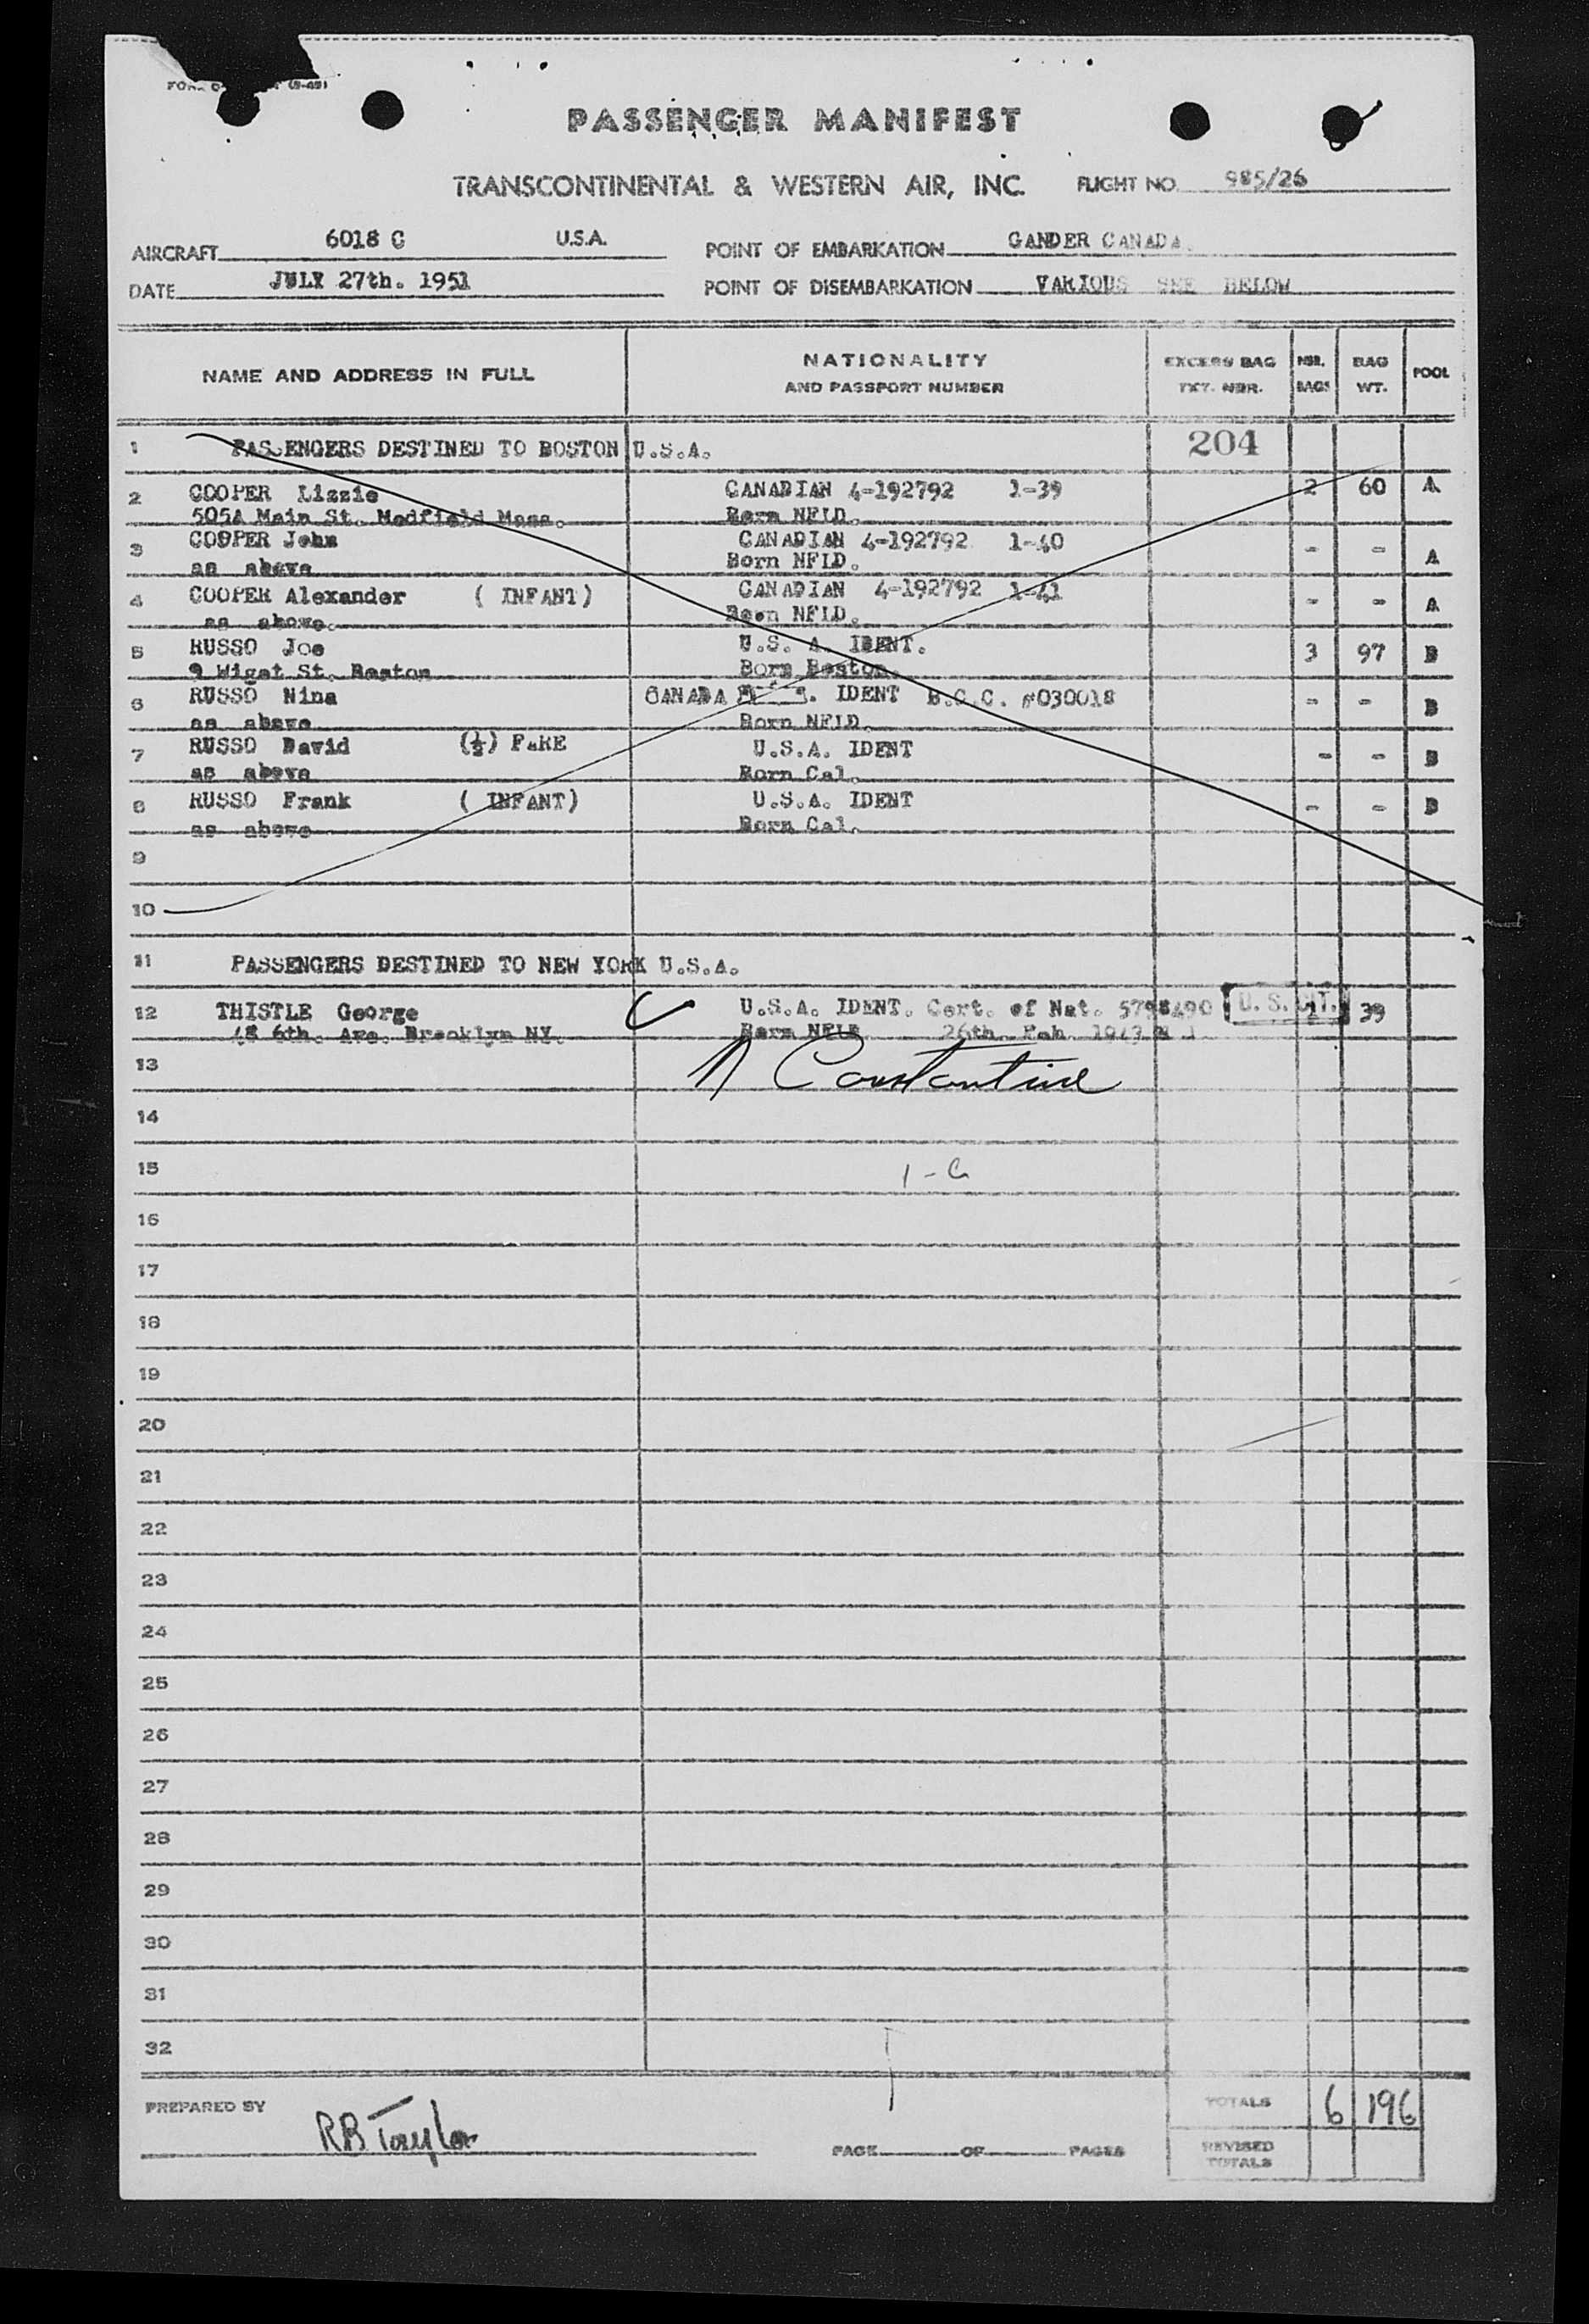 PASSENGER MANIFEST
TRANSCONTINENTAL & WESTERN AIR, INC. FLIGHT NO. 985/26
AIRCRAFT 6018 C U.S.A. POINT OF EMBARKATION GANDER CANADA.
DATE JULY 27th. 1951 POINT OF DISEMBARKATION VARIOUS SEE BELOW
NAME AND ADDRESS IN FULL NATIONALITY AND PASSPORT NUMBER EXCESS BAG TKT. NBR. NBR. BAGS BAG WT. POOL
1 PASSENGERS DESTINED TO BOSTON U.S.A. 204
2 COOPER Lizzie CANADIAN 4-192792 1-39 2 60 A
505A Main St. Medfield Mass. Born NFLD.
3 COOPER John CANADIAN 4-192792 1-40 - - A
as above Born NFLD.
4 COOPER Alexander ( INFANT) CANADIAN 4-192792 1-41 - - A
as above. Born NFLD.
5 RUSSO Joe U.S. A. IDENT. 3 97 B
9 Wiget St. Boston Born Boston.
6 RUSSO Nina CANADA IDENT B.C.C. #030018 - - B
as above Born NFLD.
7 RUSSO David (½) FARE U.S.A. IDENT - - B
as above Born Cal.
8 RUSSO Frank ( INFANT) U.S.A. IDENT - - B
as above Born Cal.
9
10
11 PASSENGERS DESTINED TO NEW YORK U.S.A.
12 THISTLE George U.S.A. IDENT. Cert. of Nat. 5798490 U. S. CIT. 1 39
48 6th. Ave. Brooklyn NY. Born NFLD 26th. Feb. 1943
13 N Constantine
14
15 1-C
16
17
18
19
20
21
22
23
24
25
26
27
28
29
30
31
32
PREPARED BY RB Taylor PAGE OF PAGES TOTALS 6 196
REVISED TOTALS